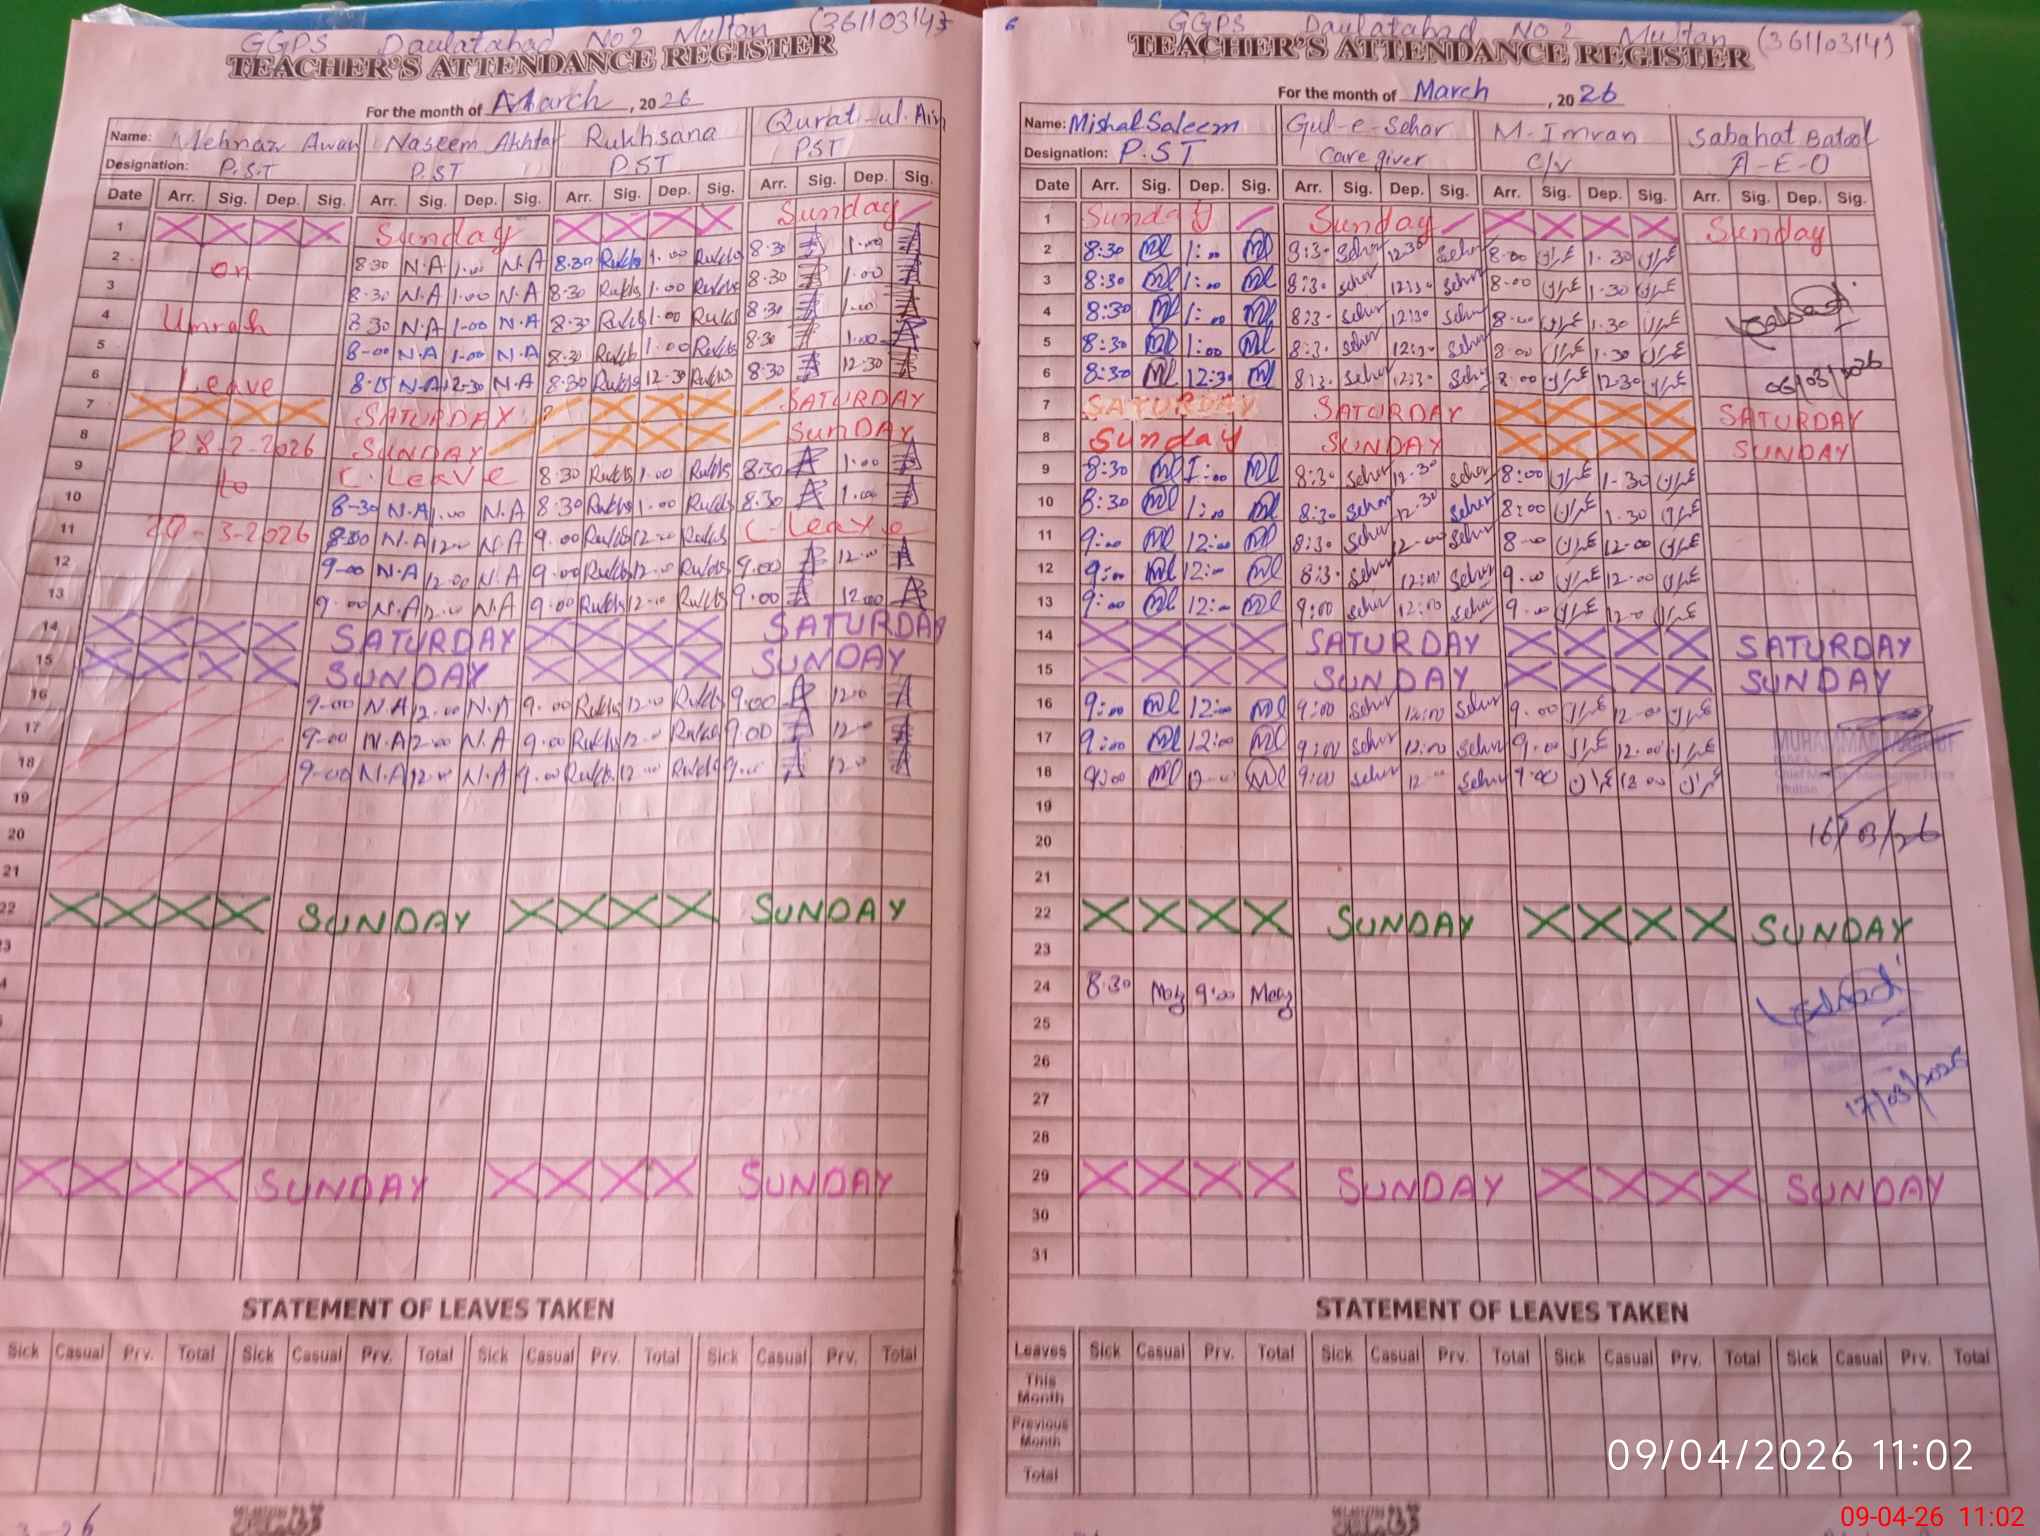 GGPS Daulatabad No2 Multan (36110314)
TEACHER'S ATTENDANCE REGISTER
For the month of March, 2026
Name: Mehnaz Awan Naseem Akhtar Rukhsana Qurat-ul-Ain
Designation: P.S.T P.ST PST PST
Date Arr. Sig. Dep. Sig. Arr. Sig. Dep. Sig. Arr. Sig. Dep. Sig. Arr. Sig. Dep. Sig.
1 Sunday Sunday
2 on 8:30 N.A 1.00 N.A 8.30 Rukhs 1.00 Rukhs 8.30 1.00
3 8.30 N.A 1.00 N.A 8.30 Rukhs 1.00 Rukhs 8.30 1.00
4 Umrah 8.30 N.A 1-00 N.A 8.30 Rukhs 1.00 Rukhs 8.30 1.00
5 8-00 N.A 1-00 N.A 8.30 Rukhs 1.00 Rukhs 8.30 1.00
6 Leave 8-15 N.A 12-30 N.A 8.30 Rukhs 12.30 Rukhs 8.30 12.30
7 SATURDAY SATURDAY
8 28-2-2026 SUNDAY SUNDAY
9 to C. Leave 8.30 Rukhs 1.00 Rukhs 8.30 1.00
10 8-30 N.A 1.00 N.A 8.30 Rukhs 1.00 Rukhs 8.30 1.00
11 -3-2026 N.A 12.00 N.A 9.00 Rukhs 12.00 Rukhs C-Leave
12 9-00 N.A 12.00 N.A 9.00 Rukhs 12.00 Rukhs 9.00 12.00
13 9.00 N.A 12.00 N.A 9.00 Rukhs 12.00 Rukhs 9.00 12.00
14 SATURDAY SATURDAY
15 SUNDAY SUNDAY
16 9-00 N.A 12.00 N.A 9.00 Rukhs 12.00 Rukhs 9.00 12.00
17 9-00 N.A 12.00 N.A 9.00 Rukhs 12.00 Rukhs 9.00 12.00
18 9-00 N.A 12.00 N.A 9.00 Rukhs 12.00 Rukhs 9.00 12.00
19
20
21
22 SUNDAY SUNDAY
SUNDAY SUNDAY
STATEMENT OF LEAVES TAKEN
Sick Casual Prv. Total Sick Casual Prv. Total Sick Casual Prv. Total Sick Casual Prv. Total
6 GGPS Daulatabad NO 2 Multan (36110314)
TEACHER'S ATTENDANCE REGISTER
For the month of March, 2026
Name: Mishal Saleem Gul-e-Sehar M-Imran Sabahat Batool
Designation: P.ST Care giver C/V A-E-O
Date Arr. Sig. Dep. Sig. Arr. Sig. Dep. Sig. Arr. Sig. Dep. Sig. Arr. Sig. Dep. Sig.
1 Sunday Sunday Sunday
2 8:30 1:00 8:30 Sehar 12:30 Sehar 8-00 1.30
3 8:30 1:00 8:30 Sehar 12:30 Sehar 8-00 1.30
4 8:30 1:00 8:30 Sehar 12:30 Sehar 8-00 1.30
5 8:30 1:00 8:30 Sehar 12:30 Sehar 8.00 1.30
6 8:30 12:30 8:30 Sehar 12:30 Sehar 8.00 12.30 06/03/2026
7 SATURDAY SATURDAY SATURDAY
8 Sunday SUNDAY SUNDAY
9 8:30 1:00 8:30 Sehar 12.30 Sehar 8:00 1-30
10 8:30 1:00 8:30 Sehar 12.30 Sehar 8:00 1.30
11 9:00 12:00 8:30 Sehar 12-00 Sehar 8-00 12-00
12 9:00 12:00 8:30 Sehar 12:00 Sehar 9.00 12.00
13 9:00 12:00 9:00 Sehar 12:00 Sehar 9.00 12.0
14 SATURDAY SATURDAY
15 SUNDAY SUNDAY
16 9:00 12:00 9:00 Sehar 12:00 Sehar 9.00 12.00
17 9:00 12:00 9:00 Sehar 12:00 Sehar 9.00 12.00
18 9:00 12:00 9:00 Sehar 12:00 Sehar 9.00 12.00
Multan
19
20 16/03/26
21
22 SUNDAY SUNDAY
23
24 8.30 9:00
25
26
27 17/03/2026
28
29 SUNDAY SUNDAY
30
31
STATEMENT OF LEAVES TAKEN
Leaves Sick Casual Prv. Total Sick Casual Prv. Total Sick Casual Prv. Total Sick Casual Prv. Total
This Month
Previous Month
Total
09/04/2026 11:02
09-04-26 11:02